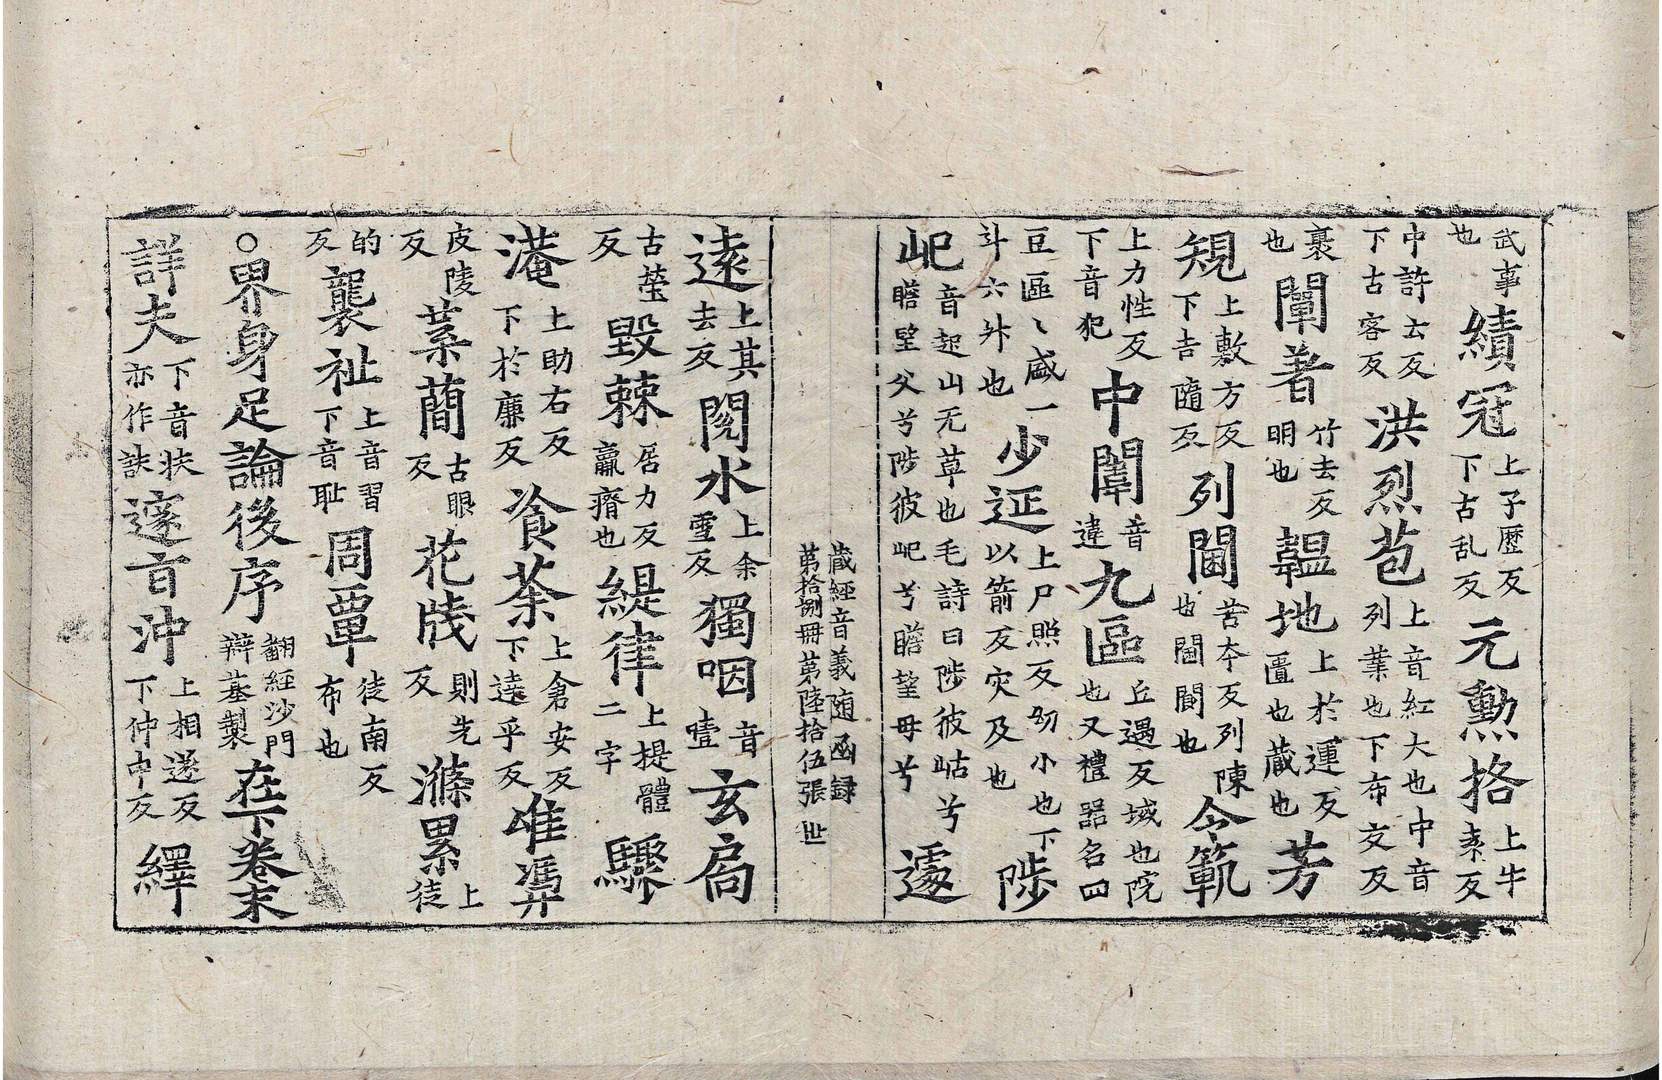 武事也績冠上子歷反下古乱反元勲挌上牛素反
中許云反下古客反洪烈苞上音紅大也中音列業也下布交反
裹也闡著竹去反明也韞地上於運反匱也蔵也芳
規上敷方反下吉隨反列閫苦本反列陳也閫閫也令範
上力性反下音犯中闈音違九區丘遇反域也院也又禮器名四
豆區〻盛一斗六升也少延上尸照反㓜小也下以箭反灾及也陟
屺音起山无草也毛詩曰陟彼岵兮瞻望父兮陟彼屺兮瞻望母兮遽
蔵經音義随函録
第拾捌冊第陸拾伍張 世
遠上其去反閱水上余雪反獨咽音壹玄扃
古螢反毀棘居力反羸瘠也緹律上提體二字驟
淹上助右反下於廉反飡荼上倉安反下達乎反唯馮
皮陵反簡古眼反花牋則先反滌累上徒
的反襲祉上音習下音耻周覃徒南反布也
○界身足論後序翻經沙門辯基製在下卷末
詳夫下音扶亦作邃音沖上相遂反下仲中反繹